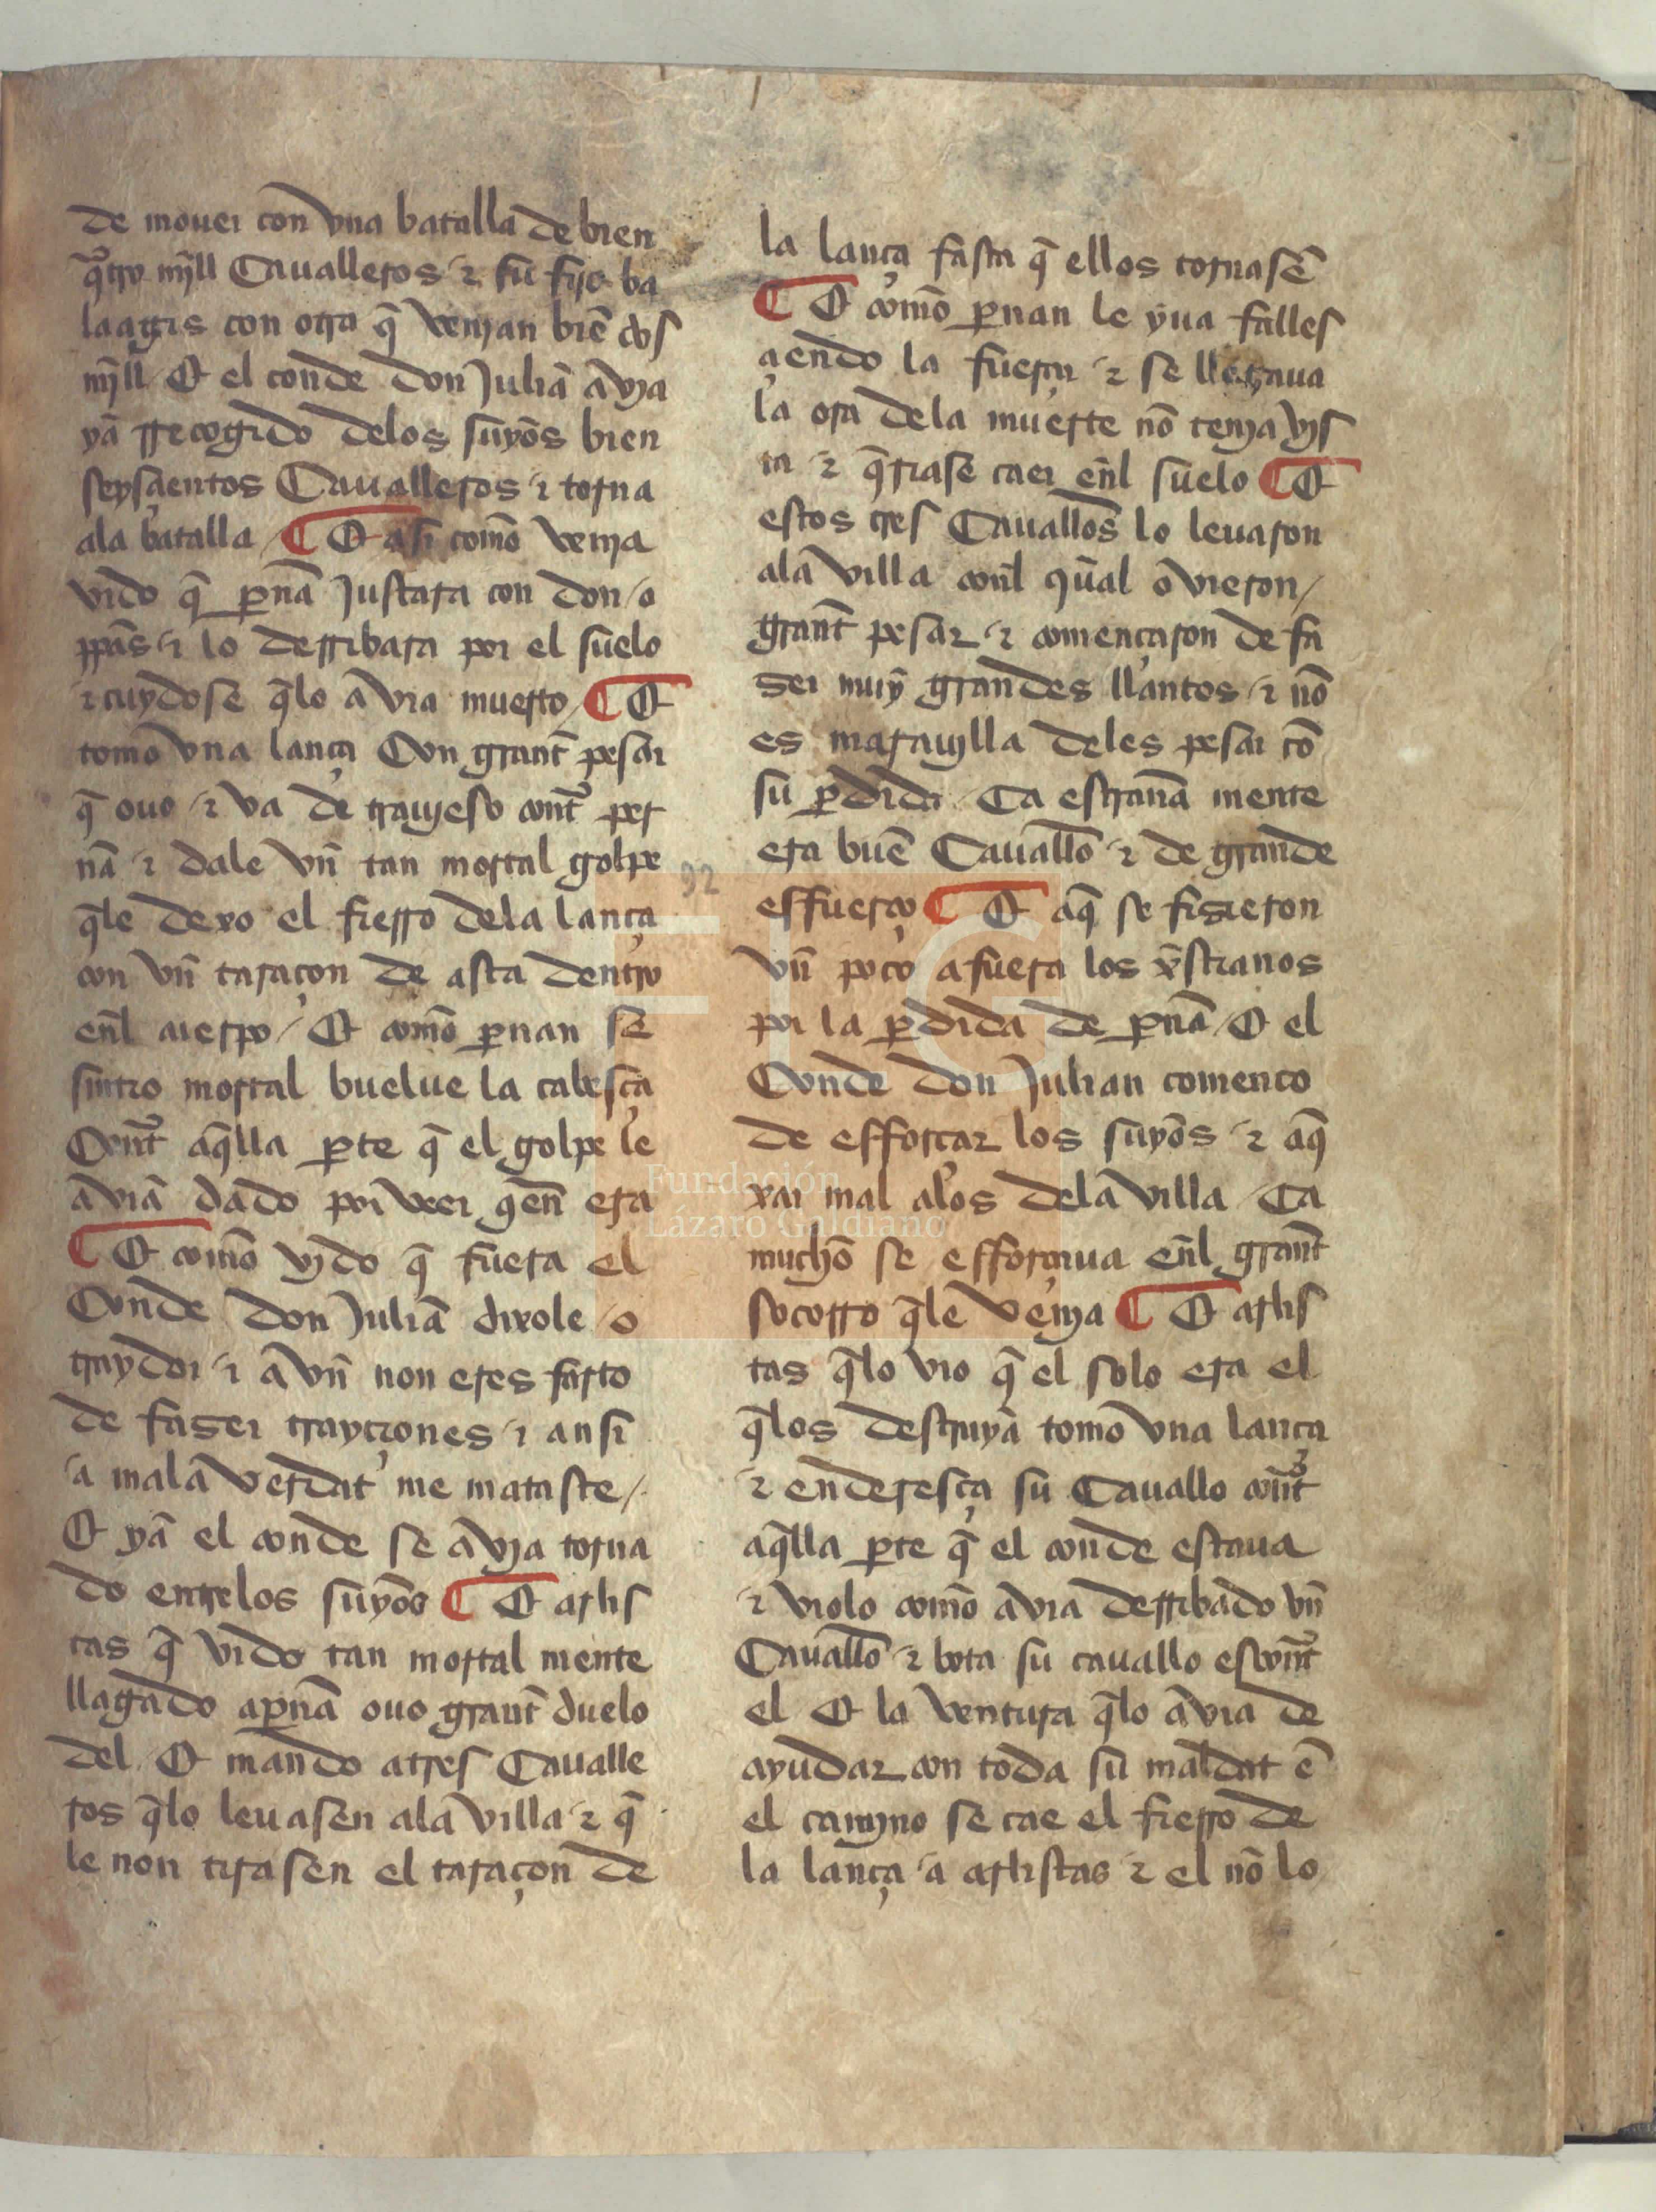 de mouer con vna batalla de bien
qͦtro mjll Caualleros ⁊ su fijo ba
laagis con otra q̃ venjan biẽ dos
mjll Et el conde don Juliã avya
yã rrecogido delos suyos bien
seysçientos Caualleros ⁊ torna
ala batalla / ¶ Et asi como venja
vido q̃ ꝑnã Justara con don / o
ppãs ⁊ lo derribara por el suelo
⁊ cuydose q̃lo avia muerto / ¶ Et
tomo vna lança Con grant pesar
q̃ ouo ⁊ va de traujeso contͣ per
nã ⁊ dale vn̄ tan mortal golpe
q̃le dexo el fierro dela lança
con vn̄ taraçon de asta dentro
enl̃ cuerpo / Et como ꝑnan se
sintio mortal buelue la cabesça
Contͣ aq̃lla ꝑte q̃ el golpe le
avia dado por veer qien̄ era
¶ Et como vjdo q̃ fuera el
Conde don Juliã dixole / o
traydor ⁊ avn̄ non eres farto
de faser trayciones ⁊ ansi
a mala verdat me mataste /
Et yã el conde se avya torna
do entrelos suyos ¶ Et arlis
tas q̃ vido tan mortal mente
llagado aꝑnã ouo grant duelo
del / Et mando atres Caualle
ros q̃lo leuasen ala villa ⁊ q̃
le non tirasen el taraçon de
la lança fasta q̃ ellos tornasẽ
¶ Et como ꝑnan le yua falles
çiendo la fuerça ⁊ se llegaua
la ora dela muerte nõ tenja vjs
ta ⁊ q̃riase caer enl̃ suelo ¶ Et
estos tres Cauallos̃ lo leuaron
ala villa conl̃ qũal ovieron /
grant pesar ⁊ començaron de fa
ser muy grandes llantos ⁊ nõ
es marauylla deles pesar cõ
su ꝑdida / Ca estrana mente
era buẽ Cauallo̅ ⁊ de grande
effuerço ¶ Et aq̃ se fisieron
vn̄ poco afuera los xp̃stianos
por la ꝑdida de ꝑnã / Et el
Conde don Julian comenco
de efforcar los suyos ⁊ aq̃
xar mal alos dela villa / Ca
mucho se efforçaua enl̃ grant
socorro q̃le venja ¶ Et arlis
tas q̃lo vio q̃ el solo era el
q̃los destruya tomo vna lanca
⁊ enderesça su Cauallo contͣ
aq̃lla ꝑte q̃ el conde estaua
⁊ violo como avia derribado vn̄
Cauallo̅ ⁊ bota su cauallo escontͣ
el Et la ventura q̃lo avia de
ayudar con toda su maldat ẽ
el camjno se cae el fierro de
la lança a arlistas ⁊ el nõ lo
92
FLG
Fundación
Lázaro Galdiano